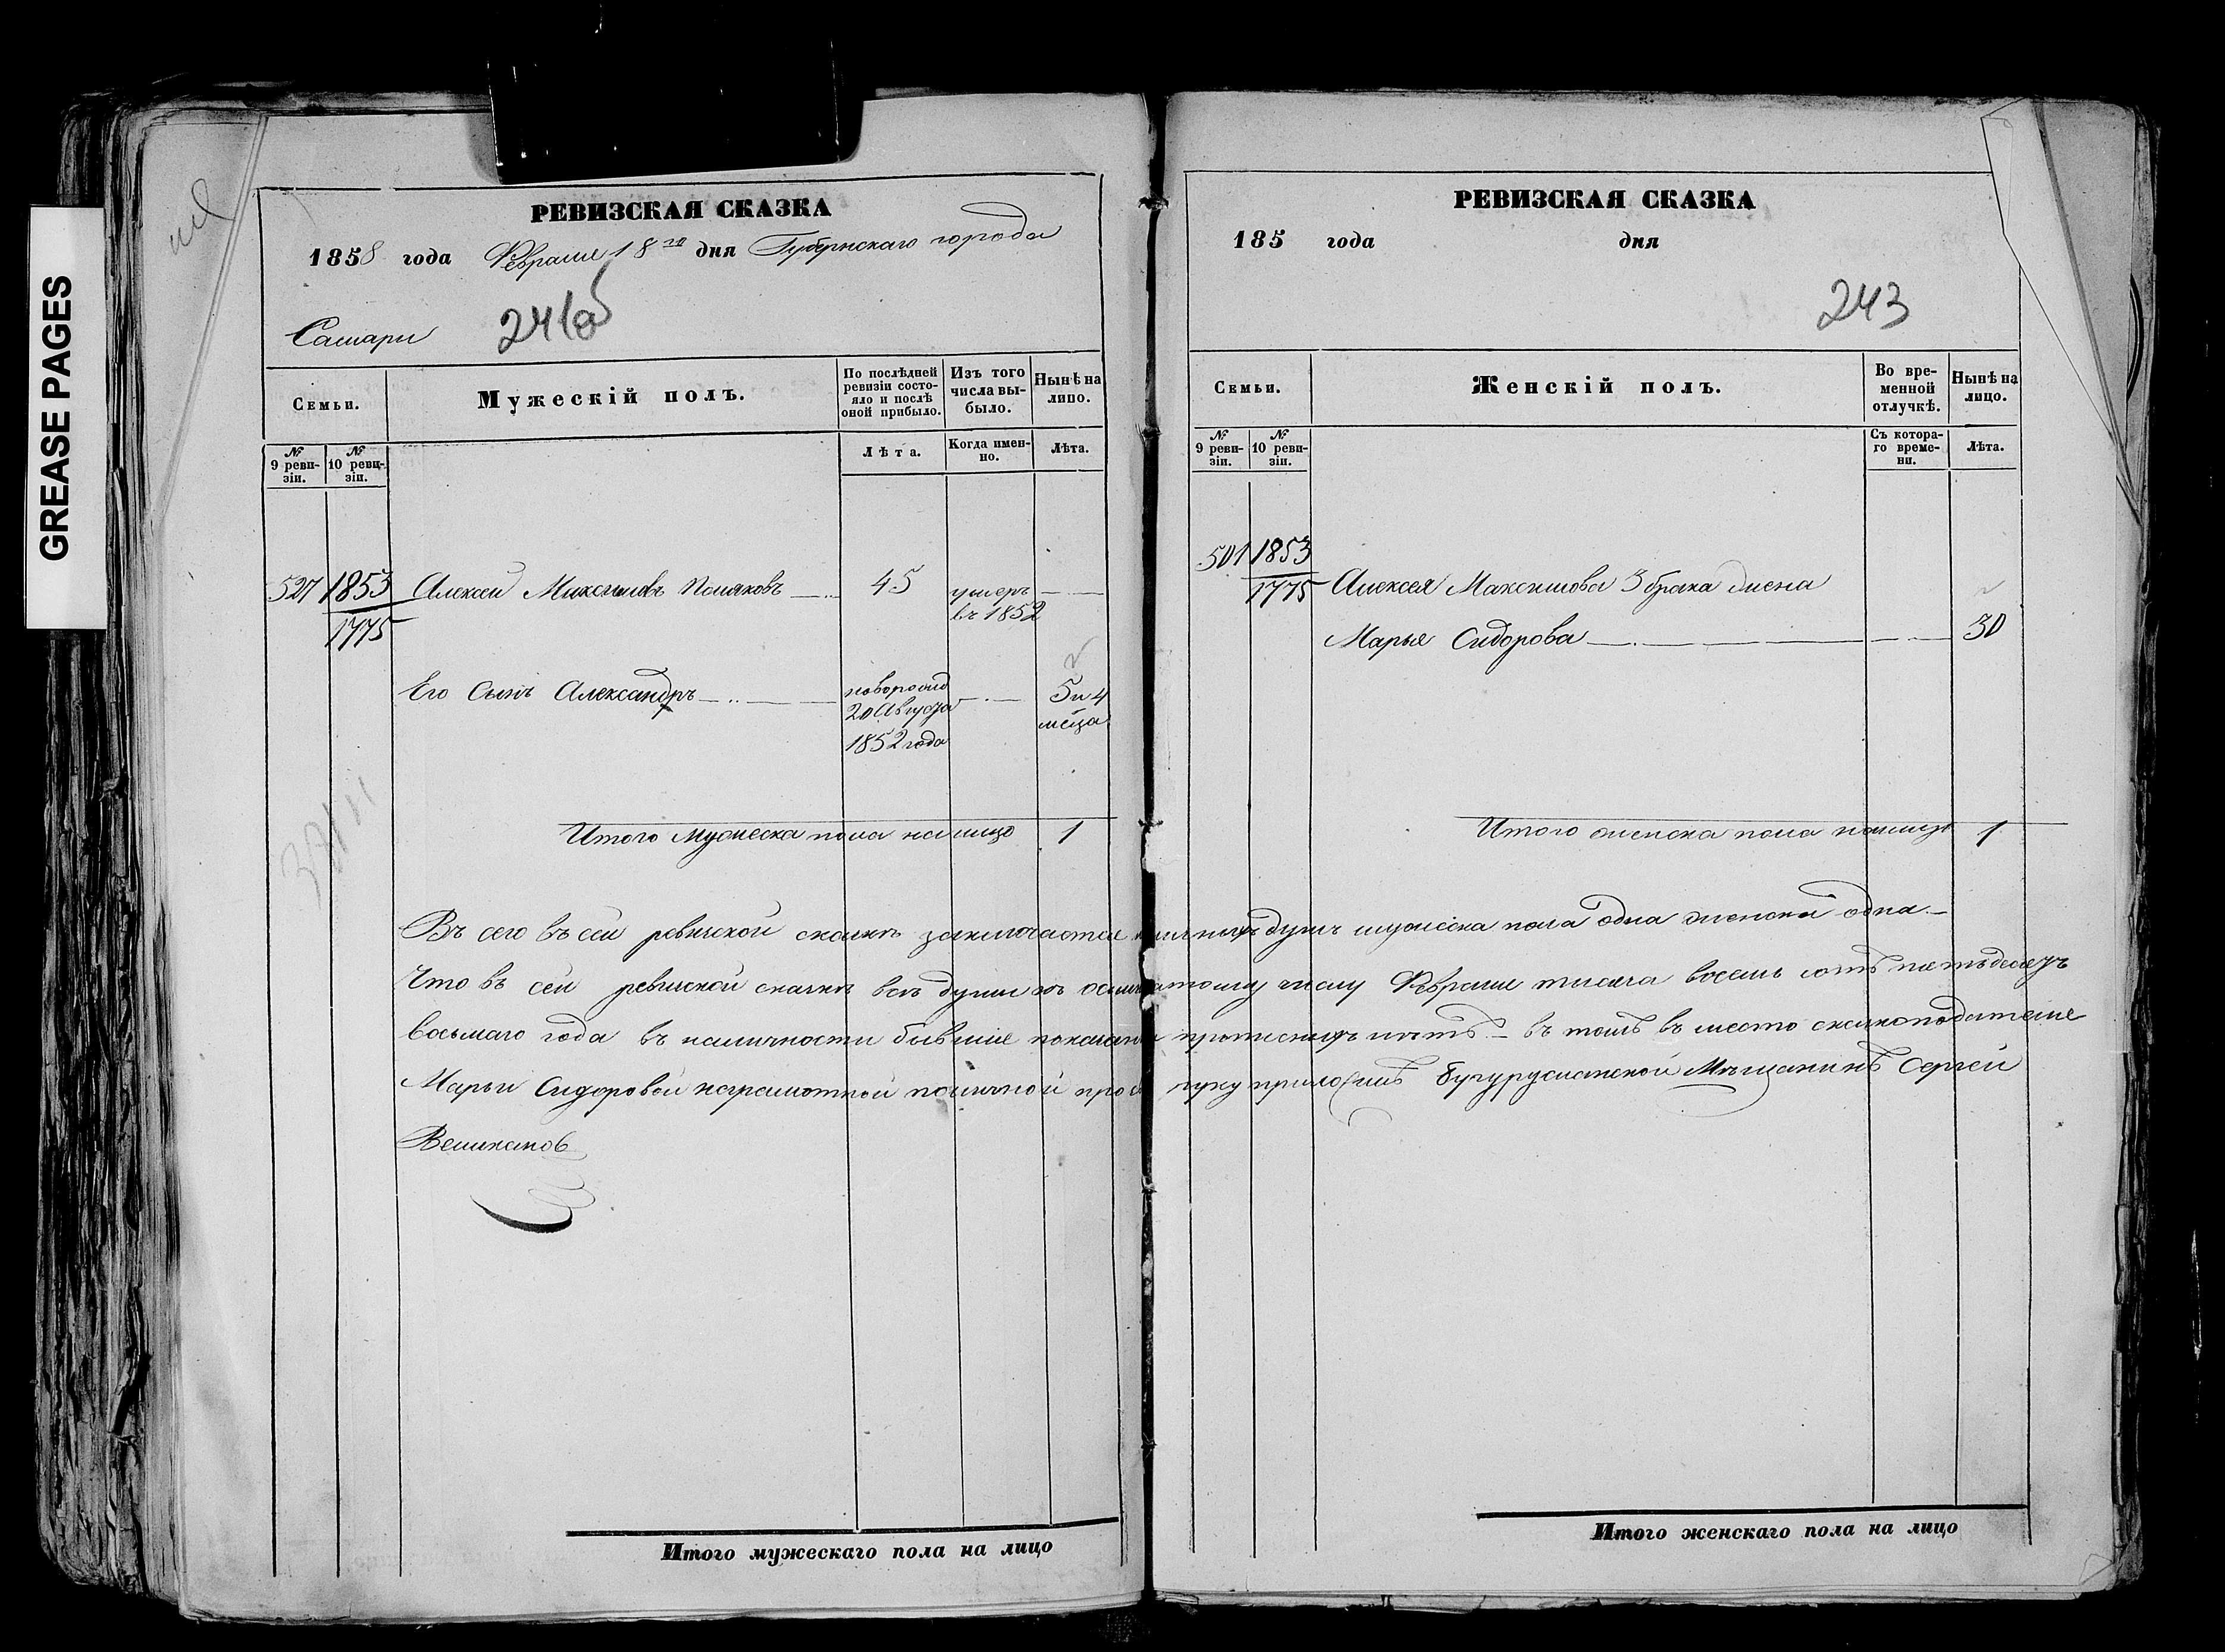 GREASE PAGES
РЕВИЗСКАЯ СКАЗКА
1858 года Февраля 18го дня Губернскаго города
Самары
Семьи.
Мужескій полъ.
По послѣдней ревизіи состояло и послѣ оной прибыло.
Изъ того числа выбыло.
Нынѣ на лицо.
№ 9 ревизіи.
№ 10 ревизіи.
Лѣта.
Когда именно.
Лѣта.
527 1853 Алексей Максимовъ Поляковъ 45 умеръ
1775 въ 1852
Его Сынъ Александръ новорожд 5 и 4
20 Августа меца
1852 года
Итого мужеска пола на лицо 1
РЕВИЗСКАЯ СКАЗКА
185 года дня
243
Семьи.
Женскій полъ.
Во временной отлучкѣ.
Нынѣ на лицо.
№ 9 ревизіи.
№ 10 ревизіи.
Съ котораго времени.
Лѣта.
501 1853
1775 Алексея Максимова 3 брака жена
Марья Сидорова 30
Итого женска пола налицо 1
въ сей ревизской сказкѣ заключается душъ мужеска пола одна женска одна
Что въ сей ревизской сказкѣ всѣ души къ числу Февраля тысяча восемь сотъ пятьдесятъ
восьмаго года въ наличности бывшие показаны прописныхъ нѣтъ въ томъ въ место сказкоподателя
Марьи Сидоровой неграмотной по личной руку приложилъ Бугурусланской Мѣщанинъ Сергей
Великанов
Итого мужескаго пола на лицо
Итого женскаго пола на лицо